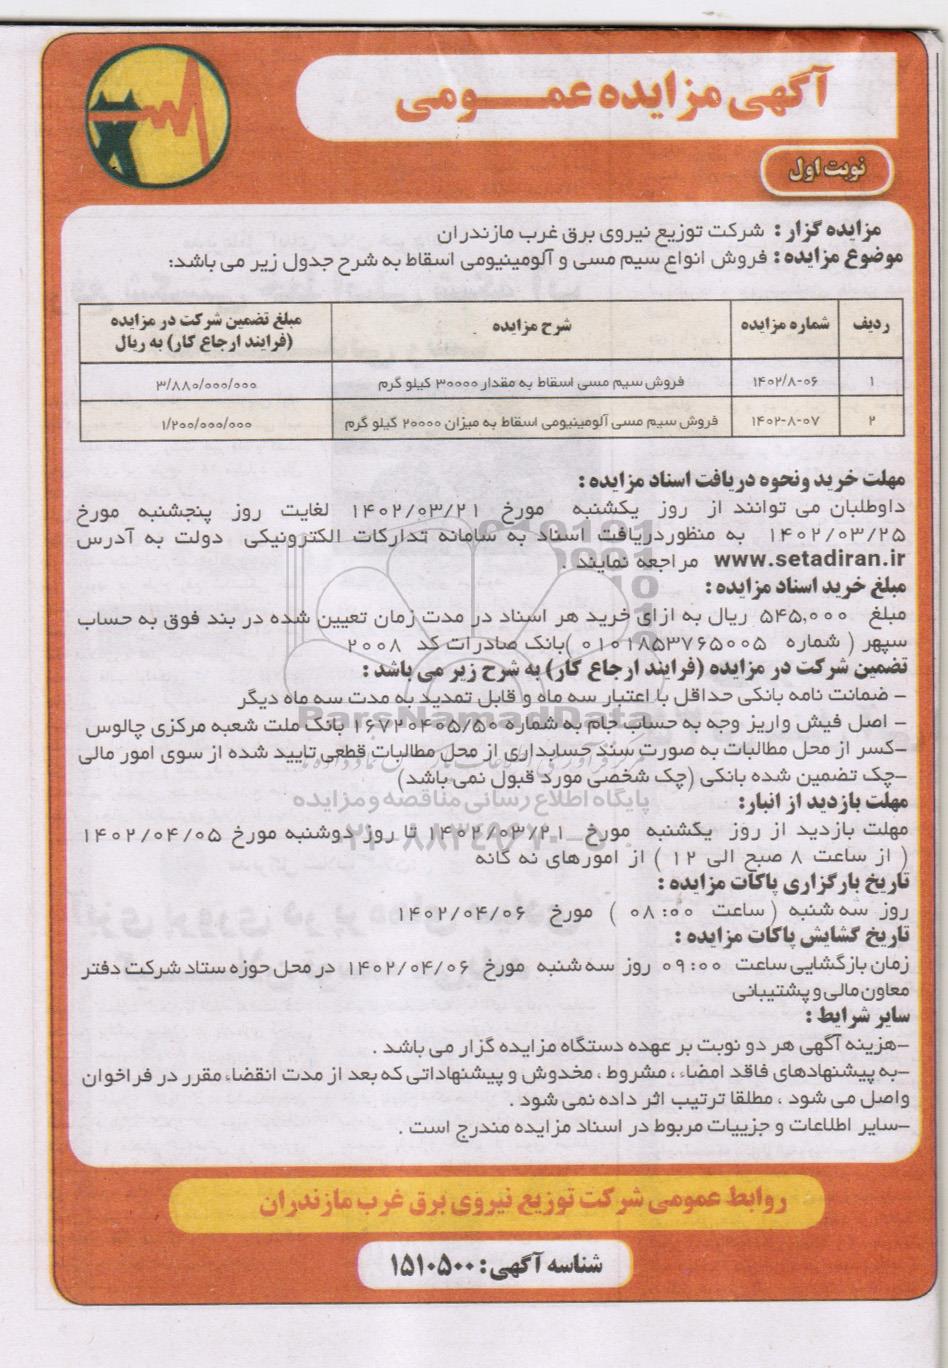 آگهی مزایده عمـــومی
نوبت اول
مزایده گزار : شرکت توزیع نیروی برق غرب مازندران
موضوع مزایده : فروش انواع سیم مسی و آلومینیومی اسقاط به شرح جدول زیر می باشد:
ردیف شماره مزایده شرح مزایده مبلغ تضمین شرکت در مزایده (فرایند ارجاع کار) به ریال
۱ ۱۴۰۲/۸-۰۶ فروش سیم مسی اسقاط به مقدار ۳۰۰۰۰ کیلو گرم ۳/۸۸۰/۰۰۰/۰۰۰
۲ ۱۴۰۲-۸-۰۷ فروش سیم مسی آلومینیومی اسقاط به میزان ۲۰۰۰۰ کیلو گرم ۱/۲۰۰/۰۰۰/۰۰۰
مهلت خرید ونحوه دریافت اسناد مزایده :
داوطلبان می توانند از روز یکشنبه مورخ ۱۴۰۲/۰۳/۲۱ لغایت روز پنجشنبه مورخ
۱۴۰۲/۰۳/۲۵ به منظوردریافت اسناد به سامانه تدارکات الکترونیکی دولت به آدرس
www.setadiran.ir مراجعه نمایند .
مبلغ خرید اسناد مزایده :
مبلغ ۵۴۵,۰۰۰ ریال به ازای خرید هر اسناد در مدت زمان تعیین شده در بند فوق به حساب
سپهر ( شماره ۰۱۰۱۸۵۳۷۶۵۰۰۵ )بانک صادرات کد ۲۰۰۸
تضمین شرکت در مزایده (فرایند ارجاع کار) به شرح زیر می باشد :
- ضمانت نامه بانکی حداقل با اعتبار سه ماه و قابل تمدید به مدت سه ماه دیگر
- اصل فیش واریز وجه به حساب جام به شماره ۱۶۷۲۰۴۰۵/۵۰ بانک ملت شعبه مرکزی چالوس
-کسر از محل مطالبات به صورت سند حسابداری از محل مطالبات قطعی تایید شده از سوی امور مالی
-چک تضمین شده بانکی (چک شخصی مورد قبول نمی باشد)
مهلت بازدید از انبار:
مهلت بازدید از روز یکشنبه مورخ ۱۴۰۲/۰۳/۲۱ تا روز دوشنبه مورخ ۱۴۰۲/۰۴/۰۵
( از ساعت ۸ صبح الی ۱۲ ) از امورهای نه گانه
تاریخ بارگزاری پاکات مزایده :
روز سه شنبه (ساعت ۰۸:۰۰ ) مورخ ۱۴۰۲/۰۴/۰۶
تاریخ گشایش پاکات مزایده :
زمان بازگشایی ساعت ۰۹:۰۰ روز سه شنبه مورخ ۱۴۰۲/۰۴/۰۶ در محل حوزه ستاد شرکت دفتر
معاون مالی و پشتیبانی
سایر شرایط :
-هزینه آگهی هر دو نوبت بر عهده دستگاه مزایده گزار می باشد .
-به پیشنهادهای فاقد امضاء ، مشروط ، مخدوش و پیشنهاداتی که بعد از مدت انقضاء مقرر در فراخوان
واصل می شود ، مطلقا ترتیب اثر داده نمی شود .
-سایر اطلاعات و جزییات مربوط در اسناد مزایده مندرج است .
روابط عمومی شرکت توزیع نیروی برق غرب مازندران
شناسه آگهی : ۱۵۱۰۵۰۰
پایگاه اطلاع رسانی مناقصه و مزایده